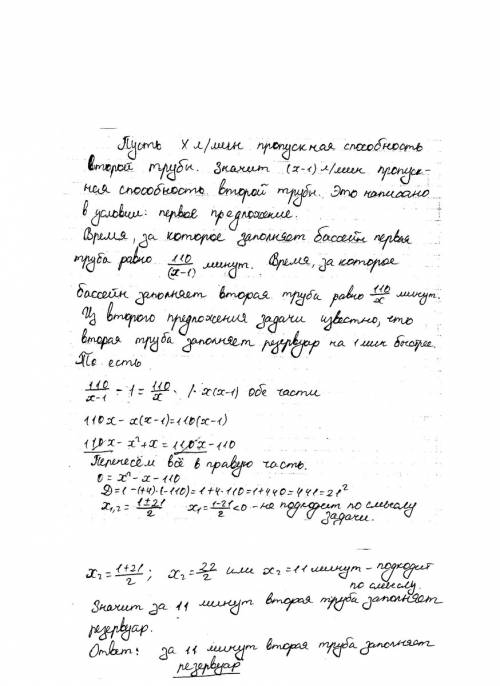 Пусть x л/мин пропускная способность
второй трубы. Значит (x-1) л/мин пропуск-
ная способность второй трубы. Это написано
в условии: первое предложение.
Время, за которое заполняет бассейн первая
труба равно 110/(x-1) минут. Время, за которое
бассейн заполняет вторая труба равно 110/x минут.
Из второго предложения задачи известно, что
вторая труба заполняет резервуар на 1 мин быстрее.
То есть
110/x-1 - 1 = 110/x. /· x(x-1) обе части
110x - x(x-1)=110(x-1)
110x - x²+x = 110x-110
Перенесём всё в правую часть.
0 = x² - x - 110
D=1-(+4)·(-110)=1+4·110=1+440=441=21²
x1,2 = 1±21/2 x1=1-21/2<0 - не подходит по смыслу
задачи.
x2=1+21/2; x2=22/2 или x2=11 минут - подходит
по смыслу.
Значит за 11 минут вторая труба заполняет
резервуар.
Ответ: за 11 минут вторая труба заполняет
резервуар